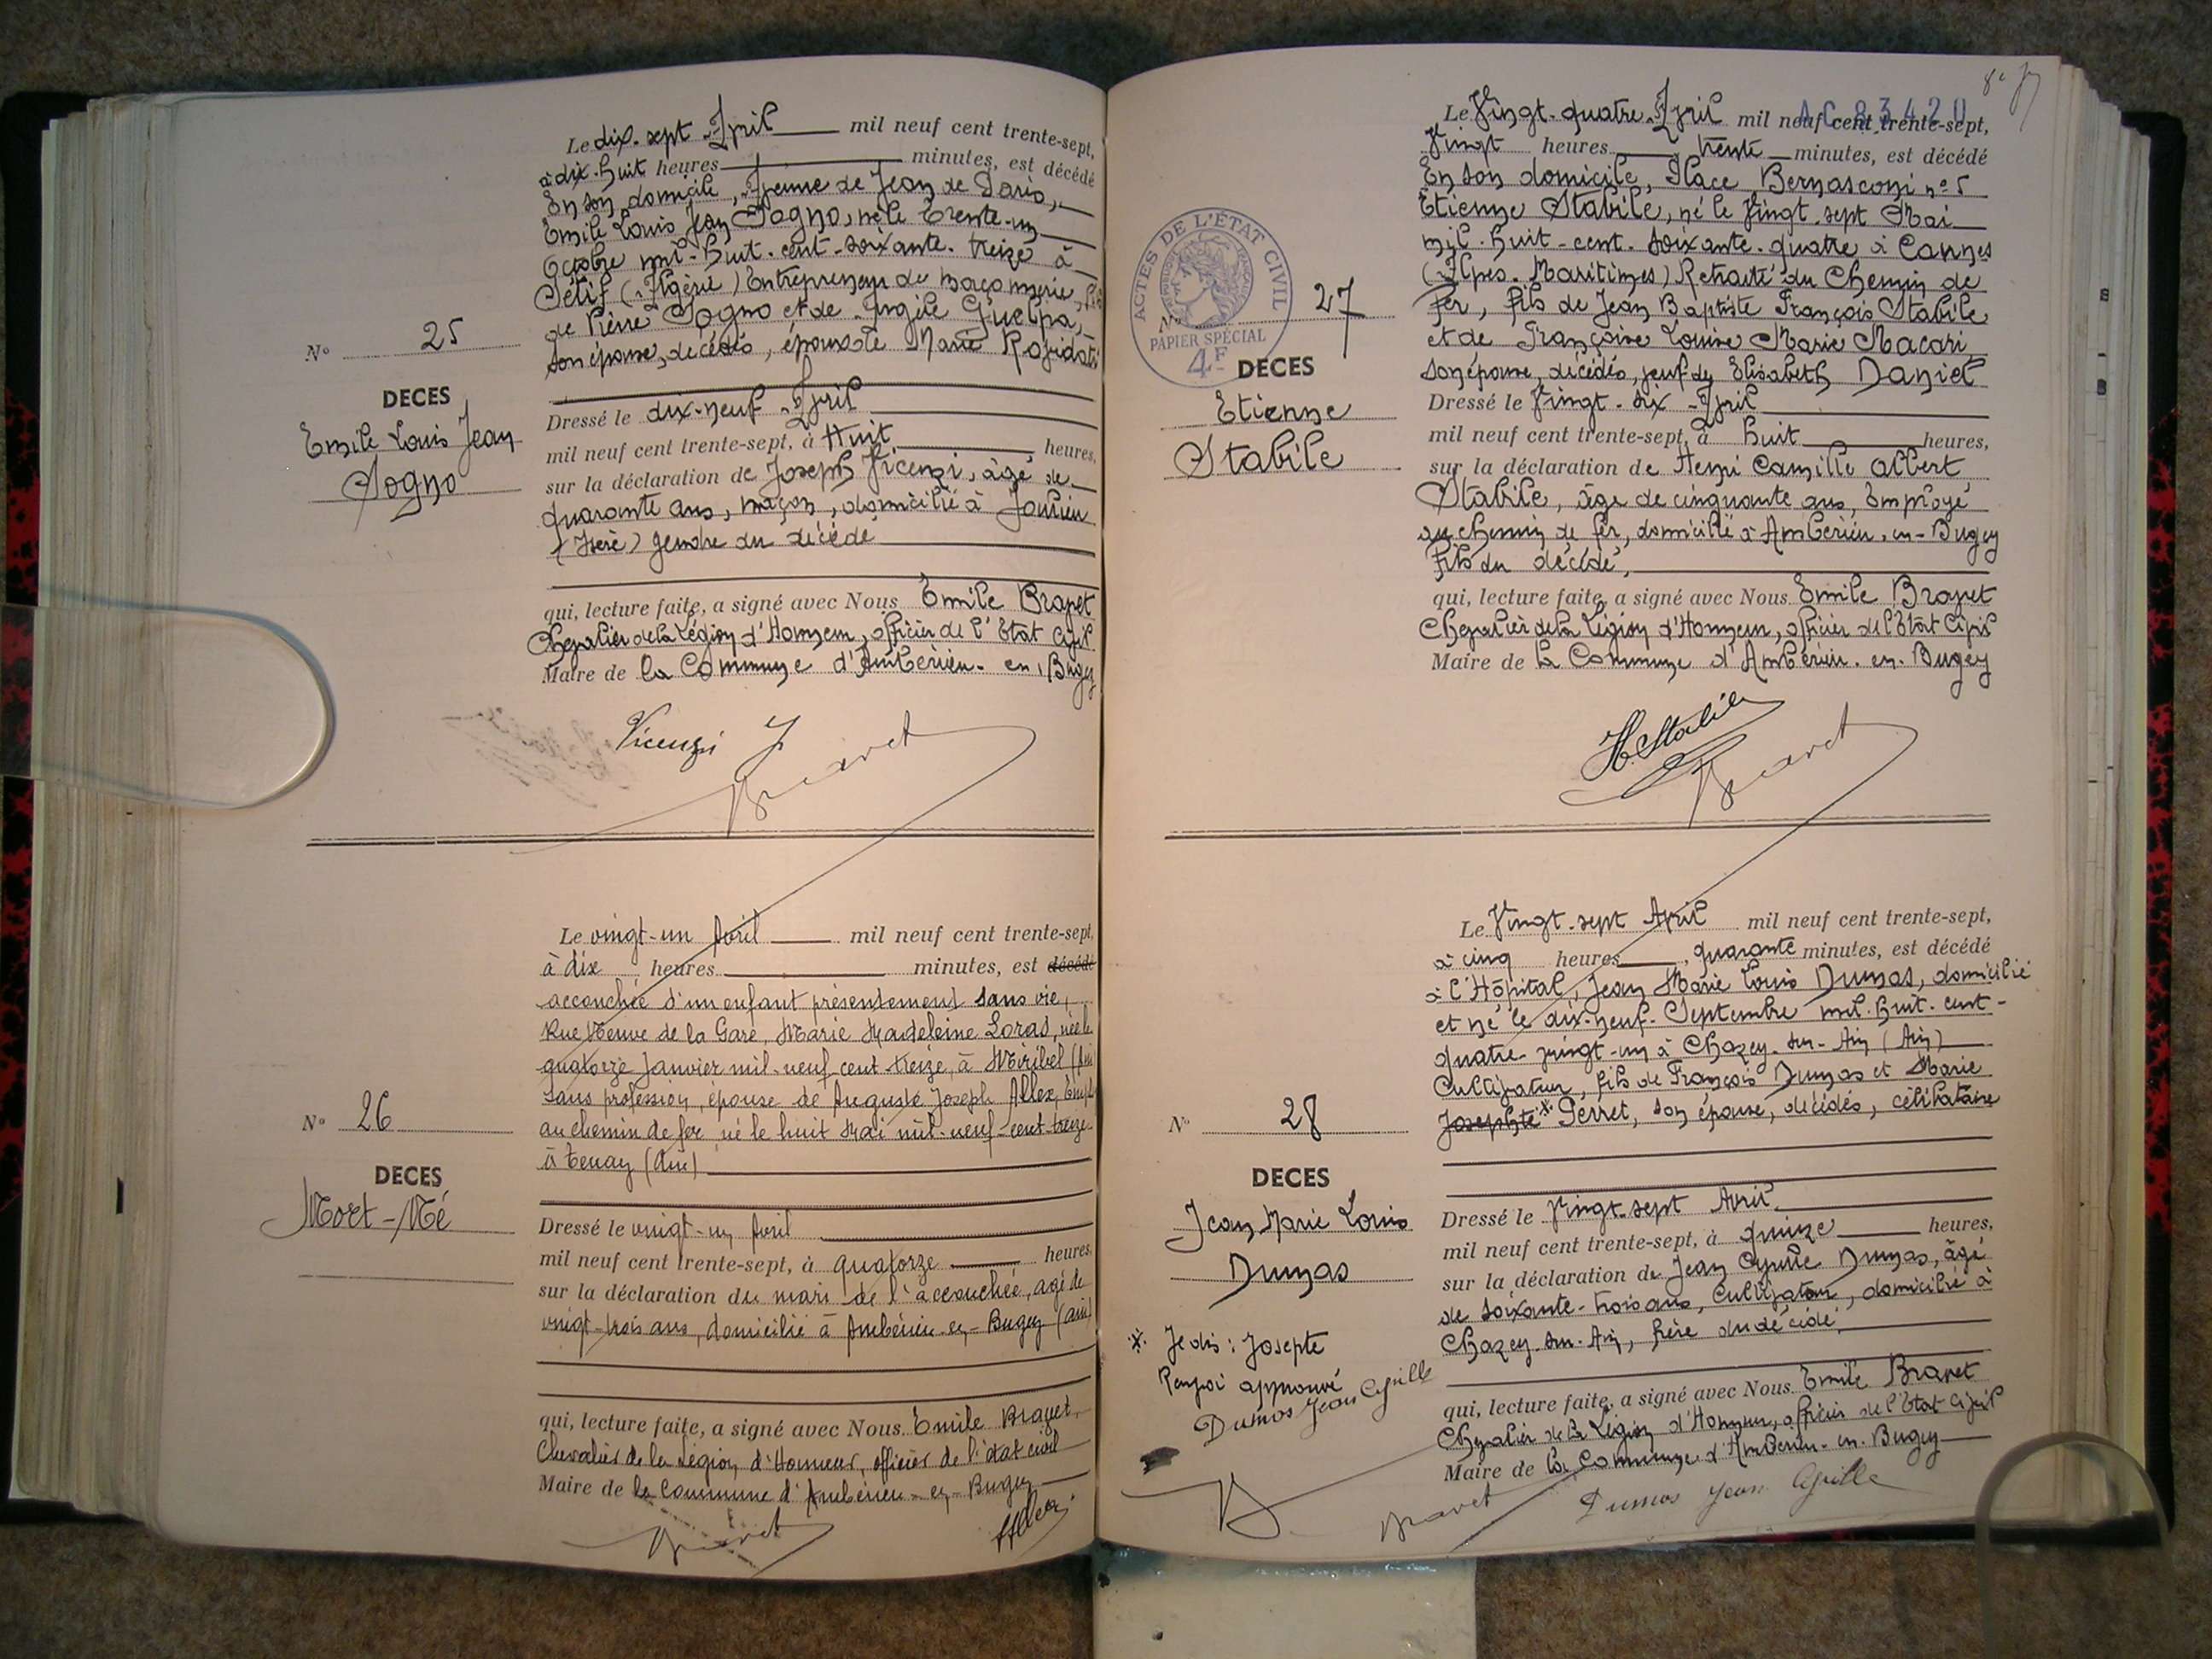 Le dix-sept Avril mil neuf cent trente-sept,
à dix-huit heures minutes, est décédé
En son domicile, Avenue de Jean de Paris,
Emile Louis Jean Sogno, né le trente-un
Octobre mil-huit-cent-soixante-treize à
Sétif (Algérie) Entrepreneur de maçonnerie, fils
de Pierre Sogno et de Angèle Guelpa,
son épouse, décédés, époux de Marie
No 25
DECES
Emile Louis Jean
Sogno
Dressé le dix-neuf Avril
mil neuf cent trente-sept, à Huit heures,
sur la déclaration de Joseph Vicenzi, âgé de
quarante ans, maçon, domicilié à
(Isère) gendre du décédé
qui, lecture faite, a signé avec Nous Emile Bravet
Chevalier de la Légion d'Honneur, officier de l'Etat Civil
Maire de la Commune d'Ambérieu-en-Bugey
Vicenzi J
Bravet
Le vingt-un Avril mil neuf cent trente-sept,
à dix heures minutes, est décédé
accouchée d'un enfant présentement sans vie,
Rue Neuve de la Gare, Marie Madeleine Loras, née le
quatorze Janvier mil-neuf-cent-treize, à Miribel (Ain)
sans profession, épouse de Auguste Joseph Allex, Employé
au chemin de fer né le huit Mai mil-neuf-cent-treize
à Tenay (Ain)
No 26
DECES
Mort-Né
Dressé le vingt-un Avril
mil neuf cent trente-sept, à quatorze heures,
sur la déclaration du mari de l'accouchée, agé de
vingt-trois ans, domicilié à Ambérieu-en-Bugey (ain)
qui, lecture faite, a signé avec Nous Emile Bravet,
Chevalier de la Légion d'Honneur, officier de l'état civil
Maire de la Commune d'Ambérieu-en-Bugey
Bravet
AC 83420
Le Vingt-quatre Avril mil neuf cent trente-sept,
Vingt heures trente minutes, est décédé
En son domicile, Place Bernasconi no 5
Etienne Stabile, né le Vingt-sept Mai
mil-huit-cent-soixante-quatre à Cannes
(Alpes-Maritimes) Retraité du Chemin de
fer, fils de Jean Baptiste François Stabile
et de Françoise Louise Marie Macari
son épouse, décédés, veuf de Elisabeth Daniel
ACTES DE L'ÉTAT CIVIL
PAPIER SPÉCIAL
4F
No 27
DECES
Etienne
Stabile
Dressé le Vingt-six Avril
mil neuf cent trente-sept, à huit heures,
sur la déclaration de Henri Camille Albert
Stabile, âgé de cinquante ans, Employé
au chemin de fer, domicilié à Ambérieu-en-Bugey
fils du décédé,
qui, lecture faite, a signé avec Nous Emile Bravet
Chevalier de la Légion d'Honneur, officier de l'Etat Civil
Maire de la Commune d'Ambérieu-en-Bugey
H. Stabile
Bravet
Le Vingt-sept Avril mil neuf cent trente-sept,
à cinq heures, quarante minutes, est décédé
à l'Hôpital, Jean Marie Louis Dumas, domicilié
et né le dix-neuf Septembre mil-huit-cent-
quatre-vingt-un à Chazey-sur-Ain (Ain)
Cultivateur, fils de François Dumas et Marie
Josephte Perret, son épouse, décédés, célibataire
No 28
DECES
Jean Marie Louis
Dumas
Dressé le Vingt-sept Avril
mil neuf cent trente-sept, à quinze heures,
sur la déclaration de Jean Cyrille Dumas, âgé
de soixante-trois ans, Cultivateur, domicilié à
Chazey-sur-Ain, frère du décédé,
Je dis: Josepte
Renvoi approuvé
Dumas Jean Cyrille
qui, lecture faite, a signé avec Nous Emile Bravet
Chevalier de la Légion d'Honneur, officier de l'Etat Civil
Maire de la Commune d'Ambérieu-en-Bugey
Bravet
Dumas Jean Cyrille